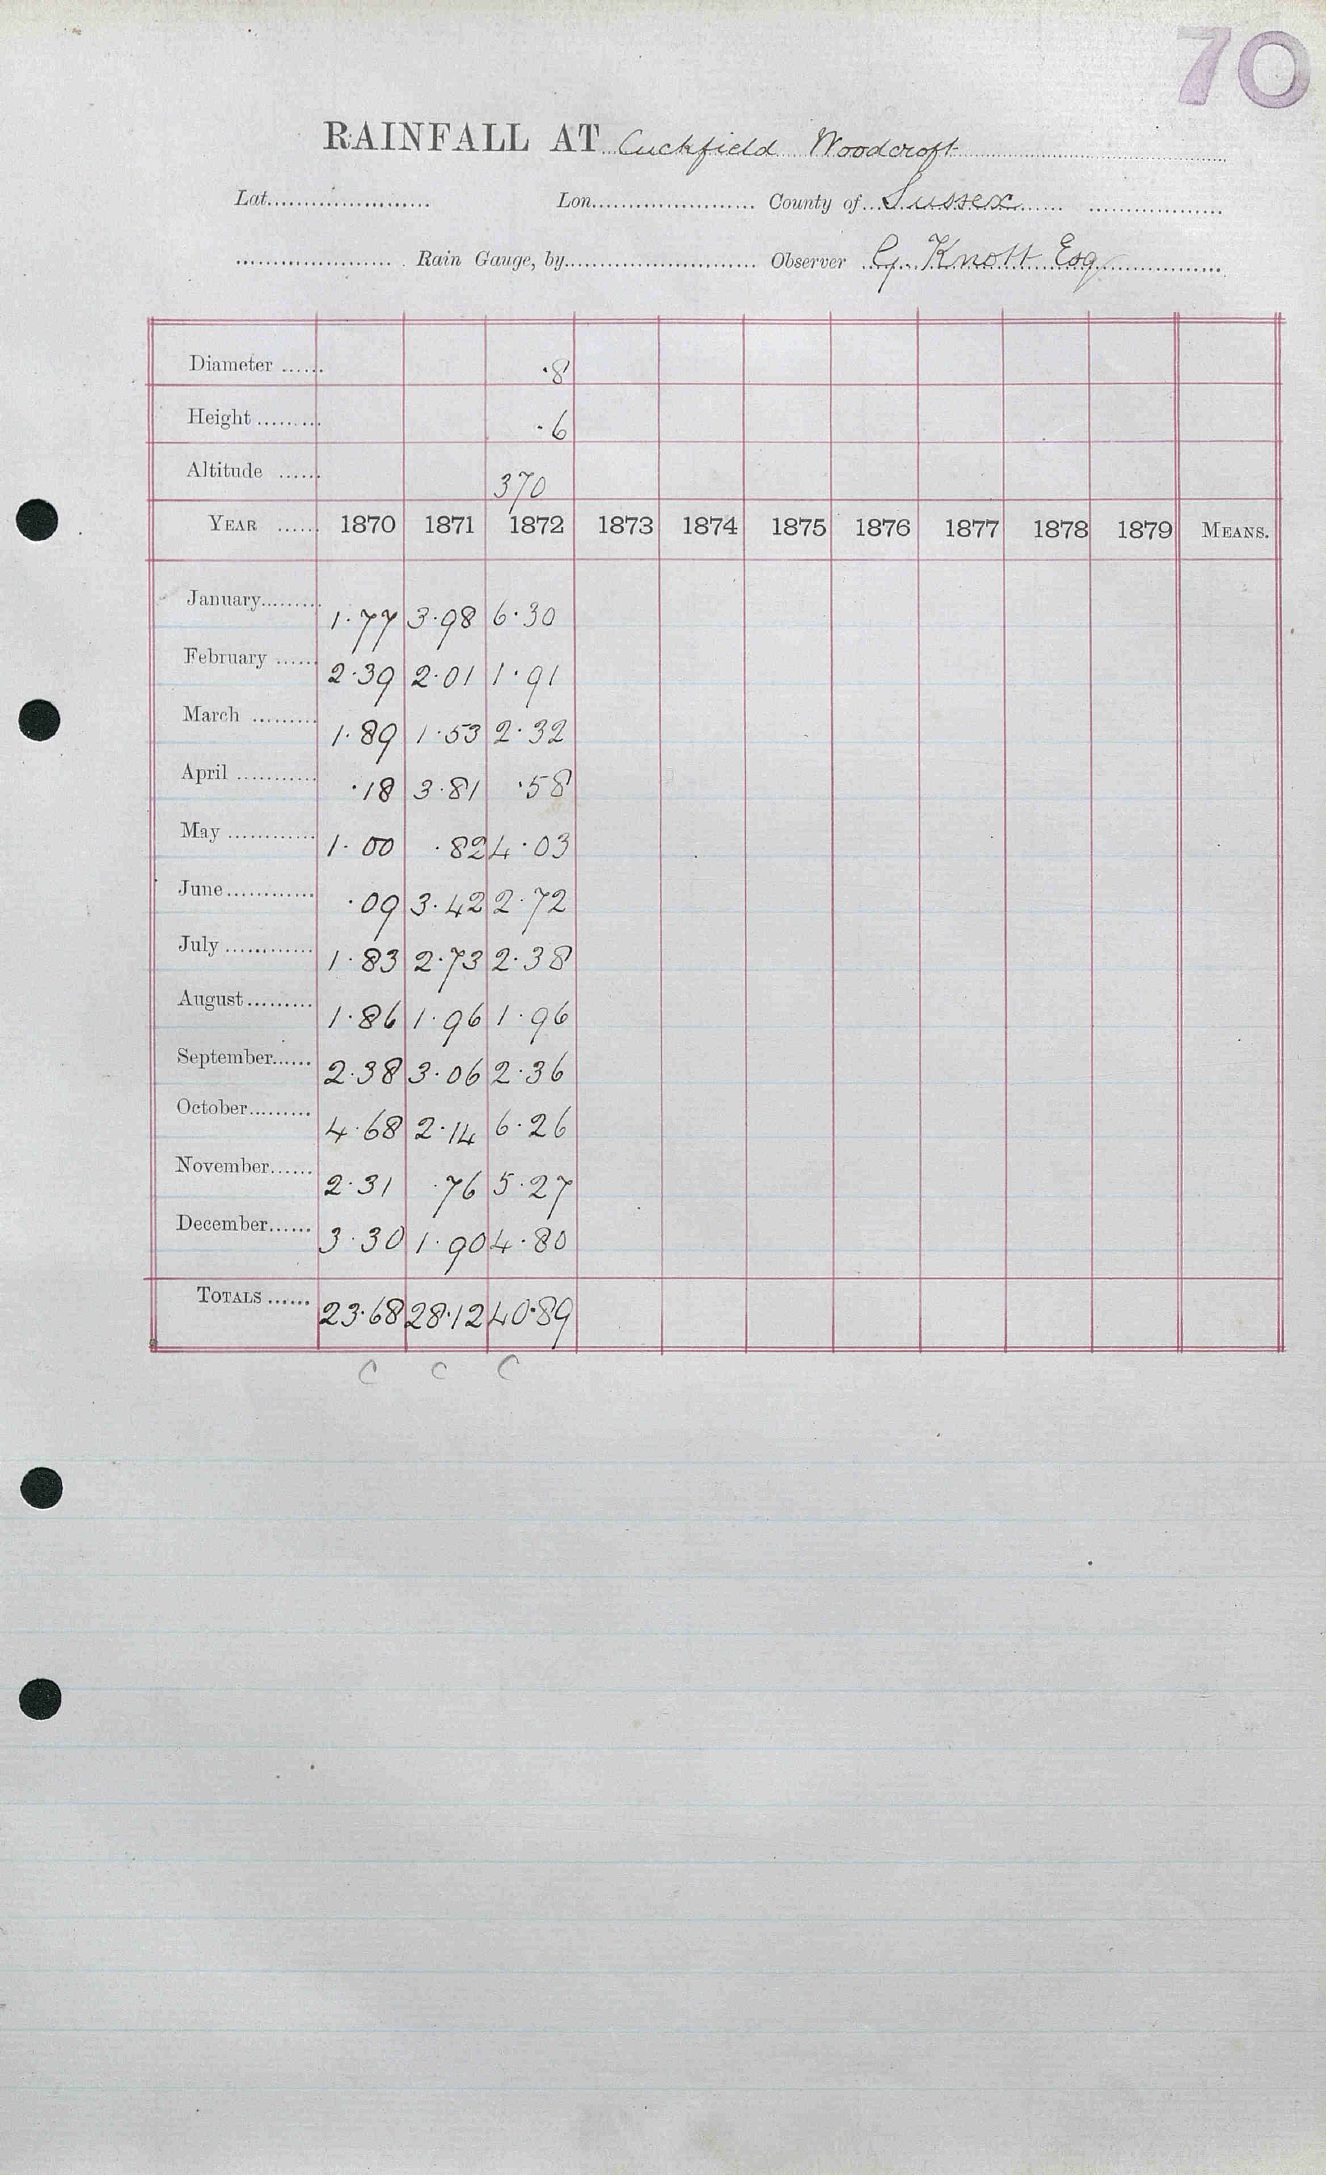 70
RAINFALL AT Cuckfield Woodcroft
Lat. Lon. County of Sussex
Rain Gauge, by Observer G. Knott Esq
Diameter ·8
Height ·6
Altitude 370
YEAR 1870 1871 1872 1873 1874 1875 1876 1877 1878 1879 MEANS.
January 1·77 3·98 6·30
February 2·39 2·01 1·91
March 1·89 1·53 2·32
April ·18 3·81 ·58
May 1·00 ·82 4·03
June ·09 3·42 2·72
July 1·83 2·73 2·38
August 1·86 1·96 1·96
September 2·38 3·06 2·36
October 4·68 2·14 6·26
November 2·31 ·76 5·27
December 3·30 1·90 4·80
TOTALS 23·68 28·12 40·89
C C C